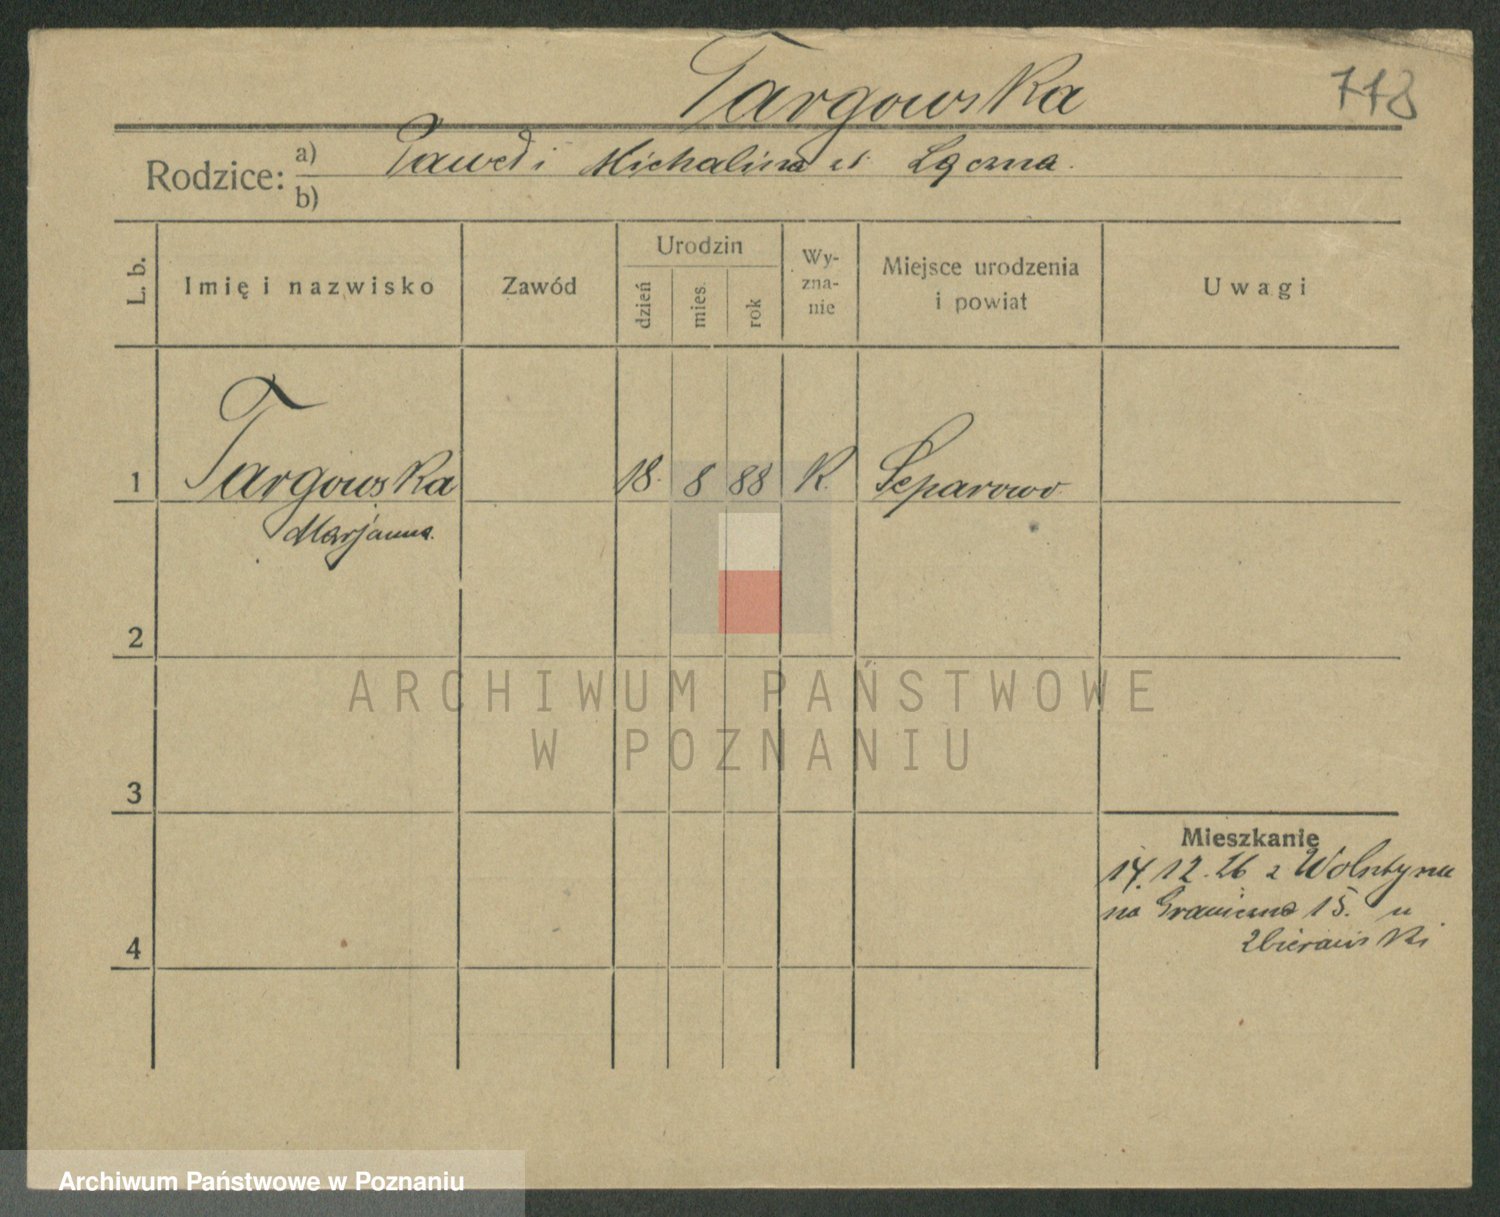 Targowska 778
Rodzice: a) Paweł i Michalina z Łączna.
b)
L. b. Imię i nazwisko Zawód Urodzin dzień mies. rok Wy-zna-nie Miejsce urodzenia i powiat Uwagi
1 Targowska 18. 8 88 K. Separowo
Marjanna.
2
ARCHIWUM PAŃSTWOWE
W POZNANIU
3
Mieszkanie
14.12.26 z
na 15. u
4 Zbierawski
Archiwum Państwowe w Poznaniu